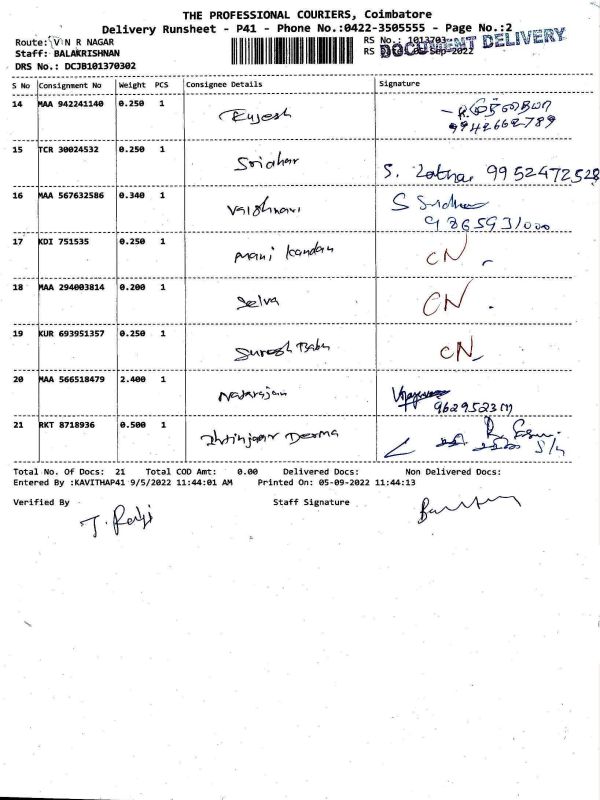 THE PROFESSIONAL COURIERS, Coimbatore
Delivery Runsheet - P41 - Phone No.:0422-3505555 - Page No.:2
Route: V N R NAGAR RS No.: 1013703
Staff: BALAKRISHNAN RS 05-Sep-2022
DOCUMENT DELIVERY
DRS No.: DCJB101370302
S No Consignment No Weight PCS Consignee Details Signature
14 MAA 942241140 0.250 1 Rajesh
9942662789
15 TCR 30024532 0.250 1 Sridhar S. Latha 9952472528
16 MAA 567632586 0.340 1 Vaishnavi S Sridhar
9865931000
17 KDI 751535 0.250 1 Mani kandan CN
18 MAA 294003814 0.200 1 Selva CN
19 KUR 693951357 0.250 1 Suresh Babu CN
20 MAA 566518479 2.400 1 Natarajan
21 RKT 8718936 0.500 1 Derma
Total No. Of Docs: 21 Total COD Amt: 0.00 Delivered Docs: Non Delivered Docs:
Entered By :KAVITHAP41 9/5/2022 11:44:01 AM Printed On: 05-09-2022 11:44:13
Verified By Staff Signature